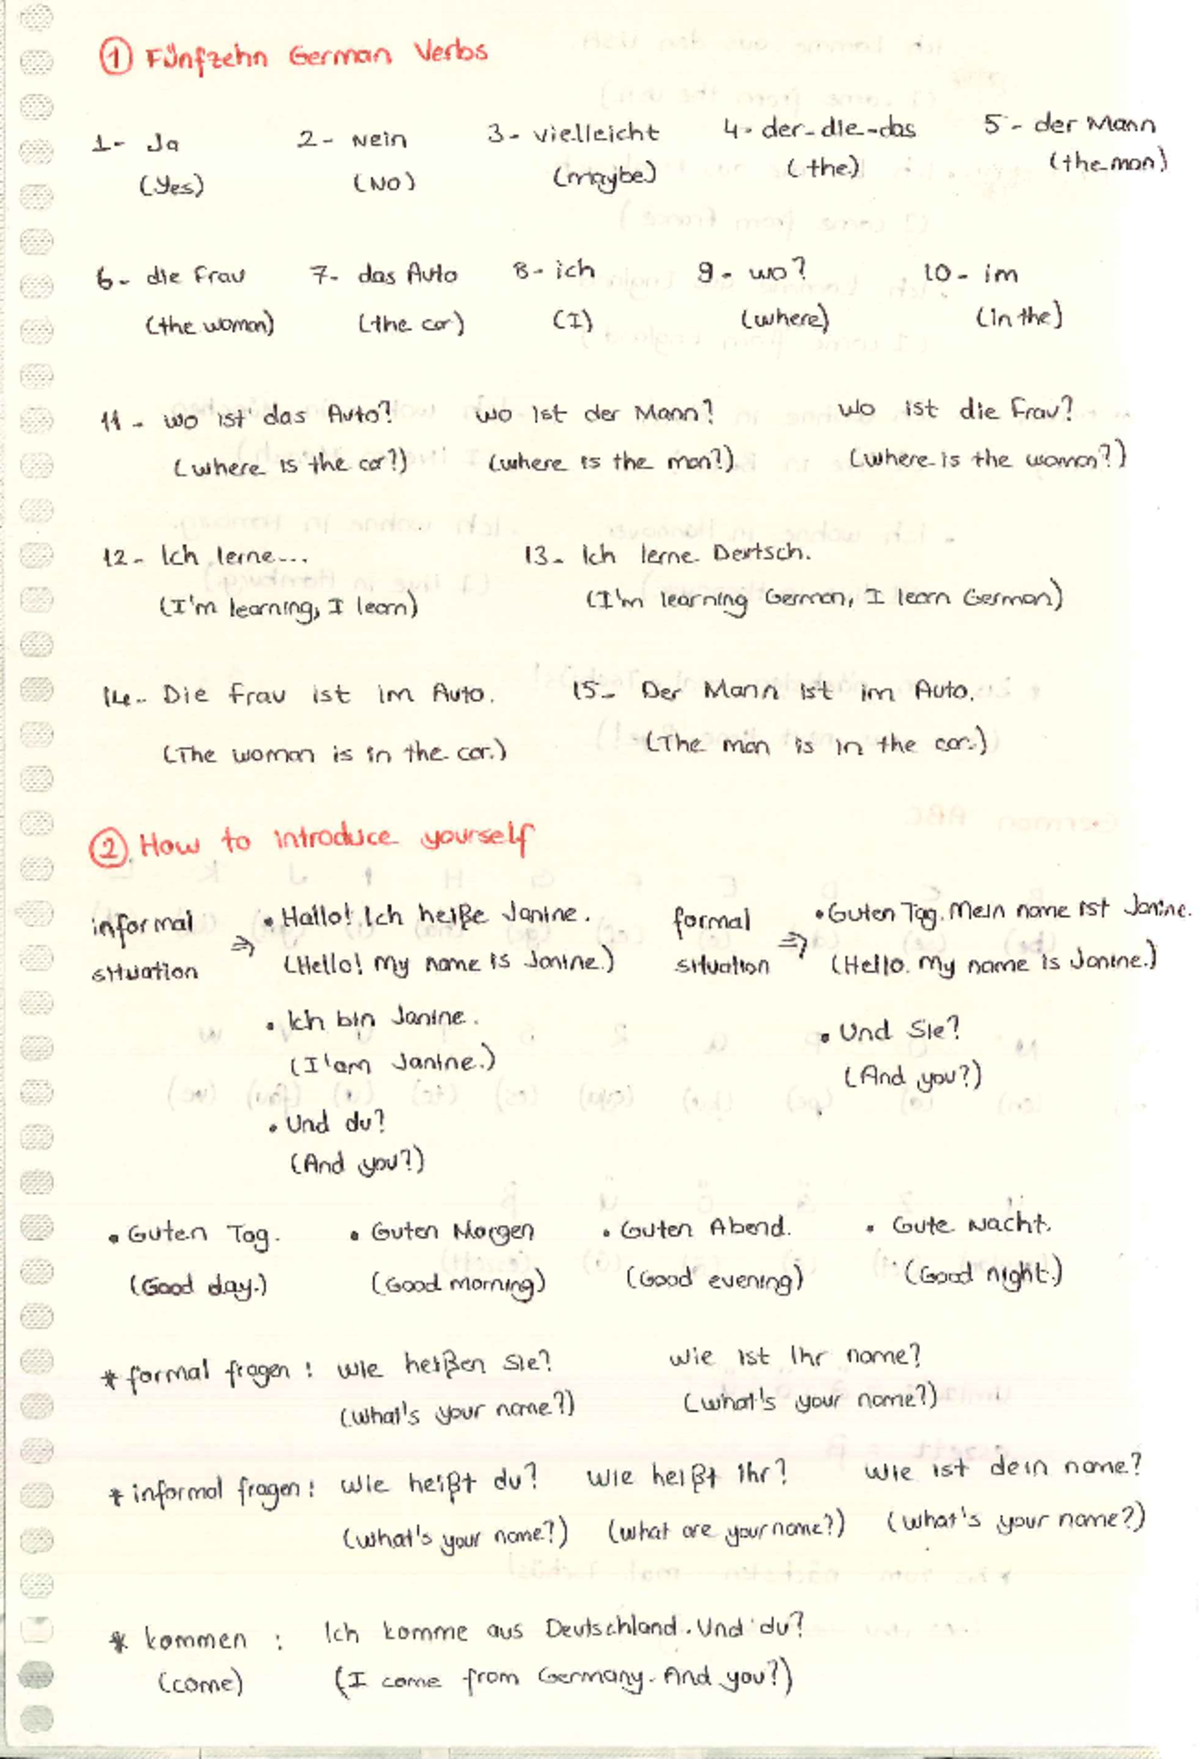 ① Fünfzehn German Verbs
1- Ja 2- Nein 3- vielleicht 4- der-die-das 5- der Mann
(Yes) (No) (maybe) (the) (the man)
6- die Frau 7- das Auto 8- ich 9- wo? 10- im
(the woman) (the car) (I) (where) (in the)
11- wo ist das Auto? wo ist der Mann? wo ist die Frau?
(where is the car?) (where is the man?) (where is the woman?)
12- Ich lerne... 13- Ich lerne Dertsch.
(I'm learning, I learn) (I'm learning German, I learn German)
14- Die Frau ist im Auto. 15- Der Mann ist im Auto.
(The woman is in the car.) (The man is in the car.)
② How to introduce yourself
informal situation ⇒ • Hallo! Ich heiße Janine. formal situation ⇒ • Guten Tag. Mein name ist Janine.
(Hello! My name is Janine.) (Hello. My name is Janine.)
• Ich bin Janine. • Und Sie?
(I'am Janine.) (And you?)
• Und du?
(And you?)
• Guten Tag. • Guten Morgen • Guten Abend. • Gute Nacht.
(Good day.) (Good morning) (Good evening) (Good night.)
* formal fragen: wie heißen Sie? wie ist Ihr name?
(what's your name?) (what's your name?)
* informal fragen: wie heißt du? wie heißt ihr? wie ist dein name?
(what's your name?) (what are your name?) (what's your name?)
* kommen: Ich komme aus Deutschland. Und du?
(come) (I come from Germany. And you?)